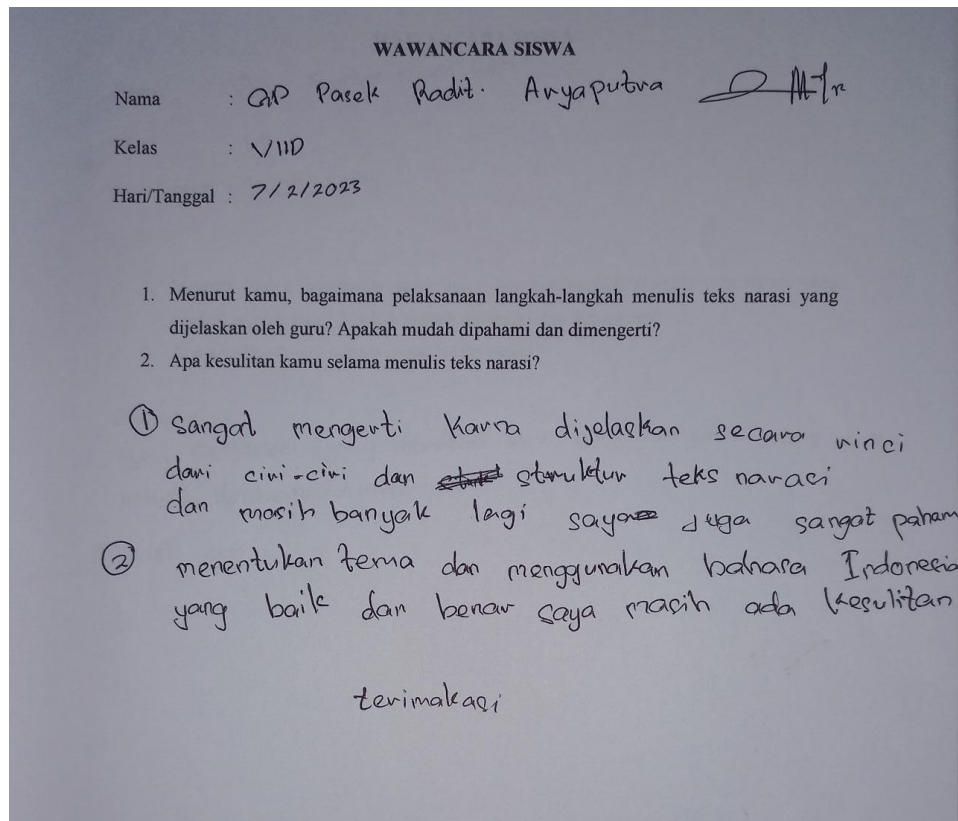 WAWANCARA SISWA
Nama : GP Pasek Radit. Aryaputra
Kelas : VIID
Hari/Tanggal : 7/2/2023
1. Menurut kamu, bagaimana pelaksanaan langkah-langkah menulis teks narasi yang
dijelaskan oleh guru? Apakah mudah dipahami dan dimengerti?
2. Apa kesulitan kamu selama menulis teks narasi?
① Sangat mengerti Karna dijelaskan secara rinci
dari ciri-ciri dan struktur teks narasi
dan masih banyak lagi saya juga sangat paham
② menentukan tema dan menggunakan bahasa Indonesia
yang baik dan benar saya masih ada kesulitan
terimakasi